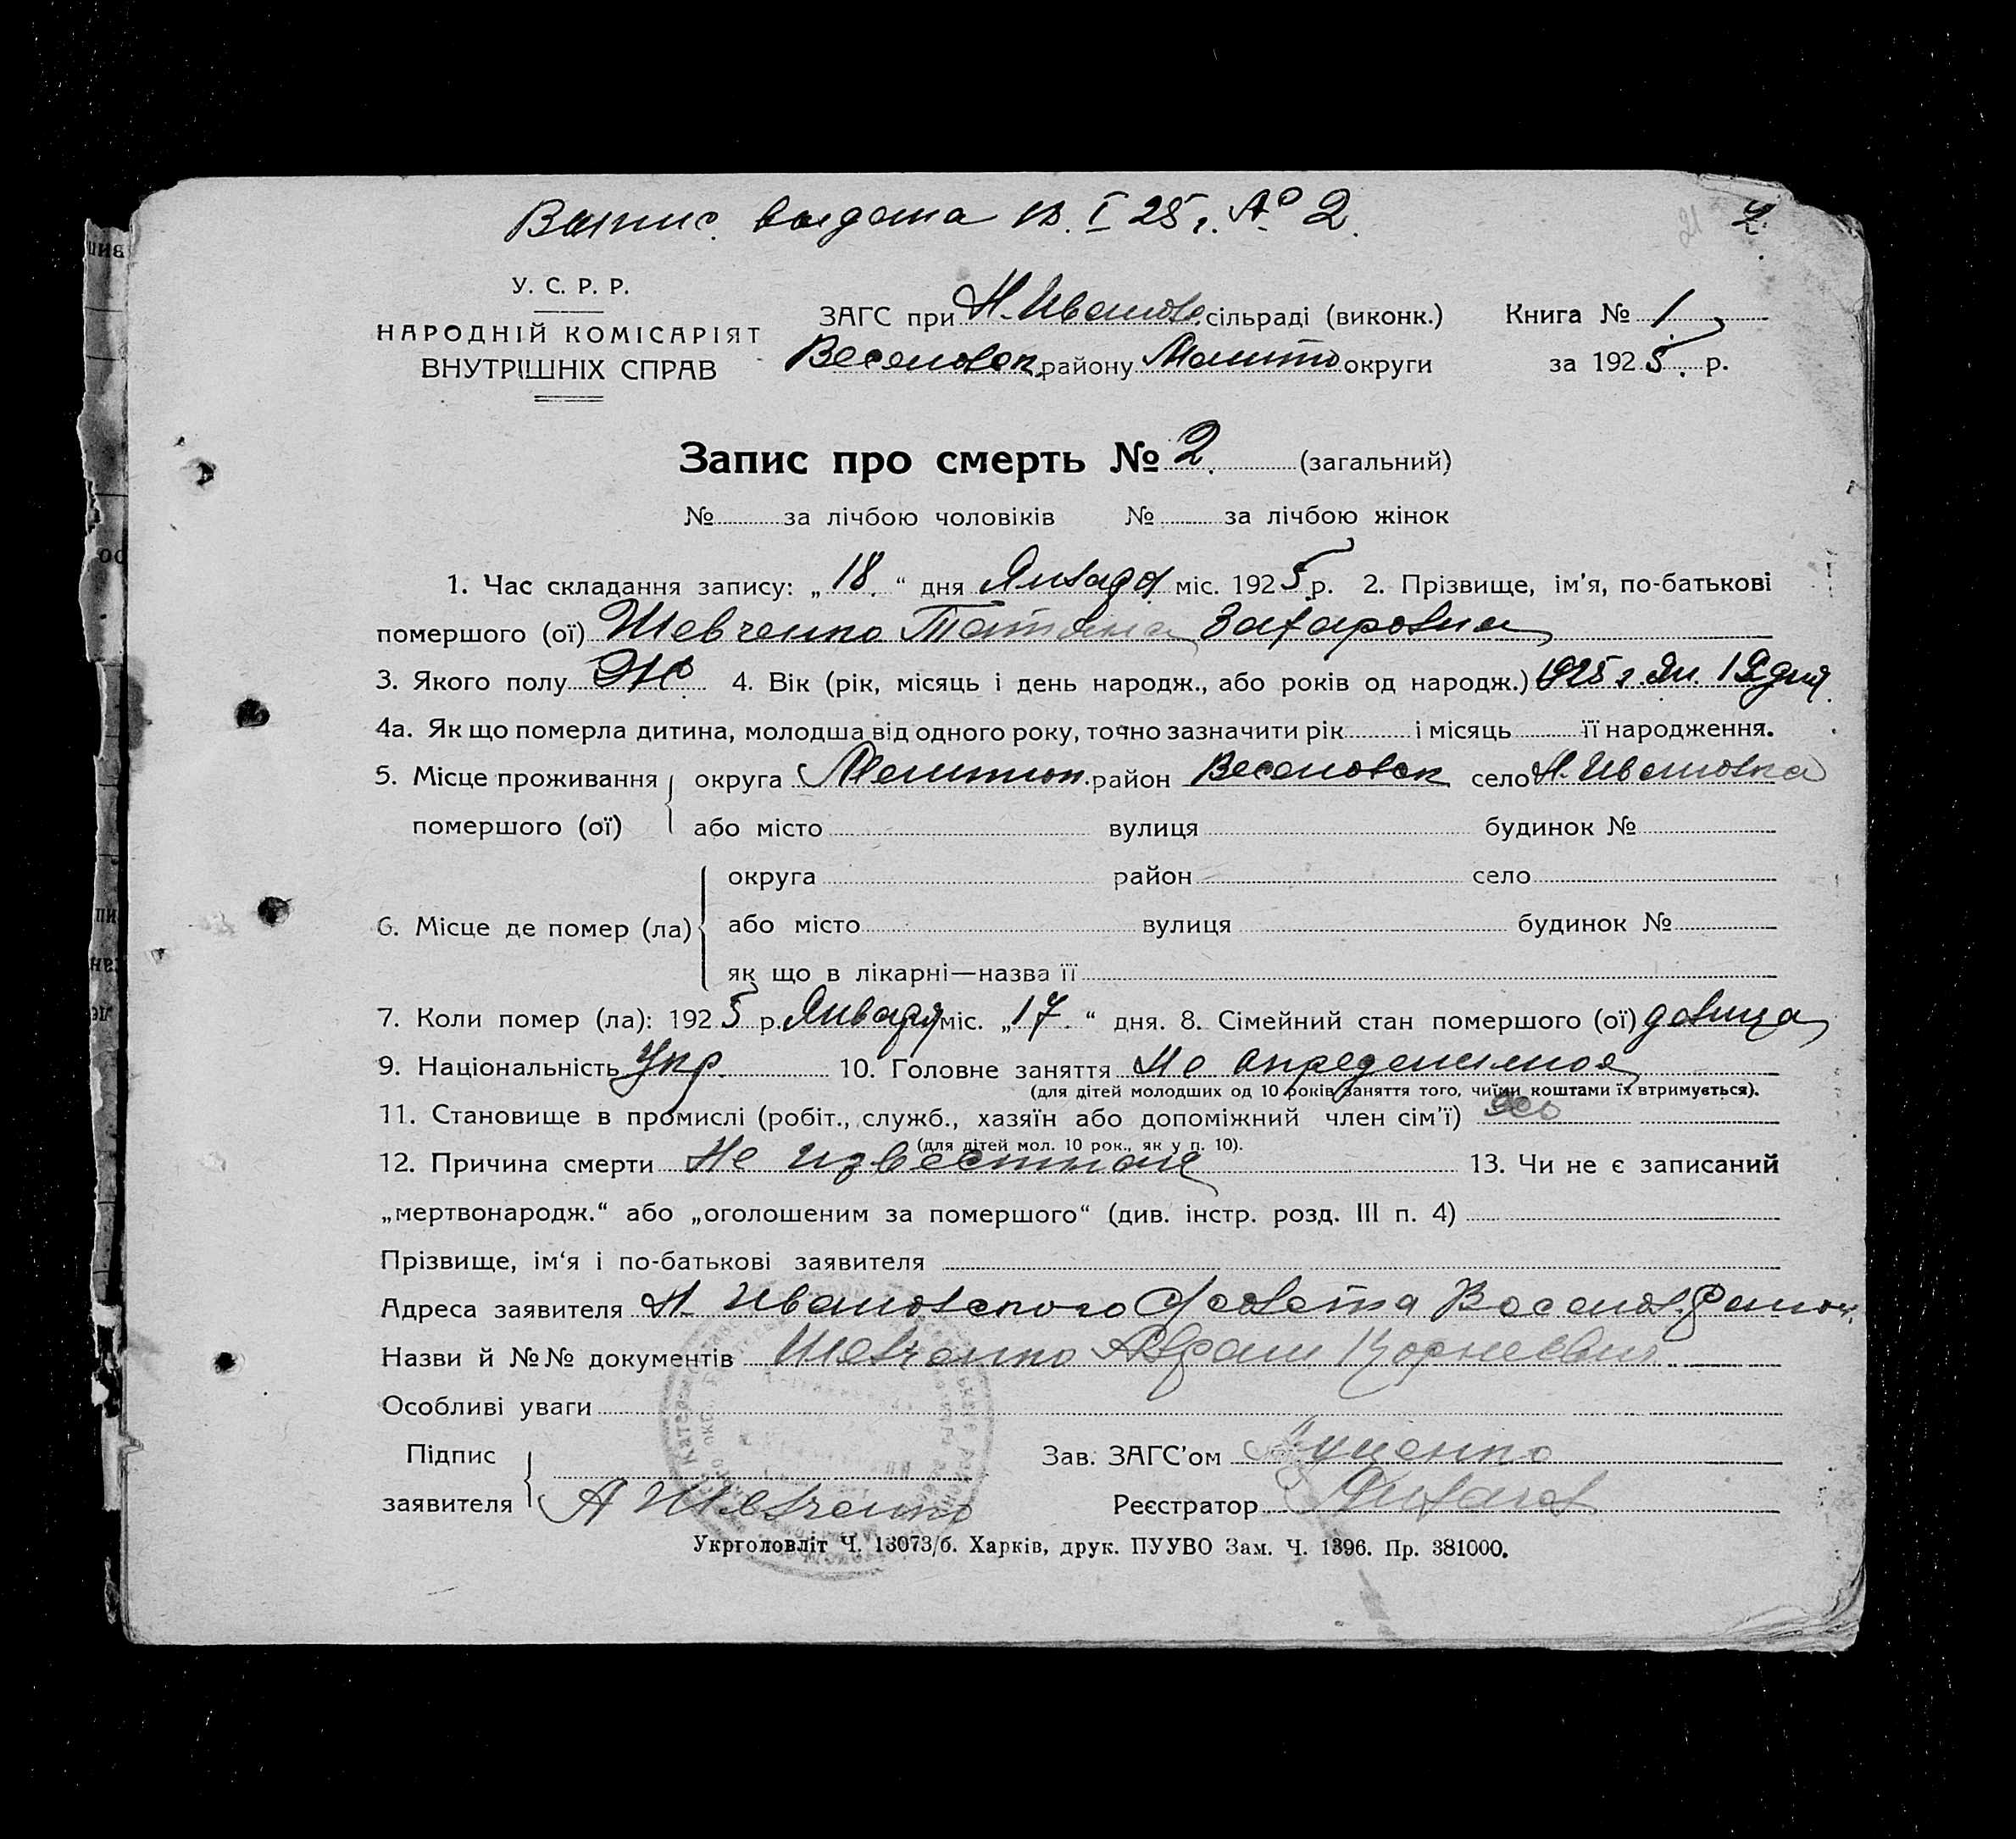 Выпис. выдана 18. I 25 г. № 2.
21 2.
У. С. Р. Р.
НАРОДНІЙ КОМІСАРІЯТ
ВНУТРІШНІХ СПРАВ
ЗАГС при Н-Иванов. сільраді (виконк.) Книга № 1.
Веселовск. району Мелито округи за 1925. р.
Запис про смерть № 2. (загальний)
№ за лічбою чоловіків № за лічбою жінок
1. Час складання запису: „18.“ дня Января міс. 1925 р. 2. Прізвище, ім'я, по-батькові
помершого (ої) Шевченко Татьяна Захаровна
3. Якого полу Ж. 4. Вік (рік, місяць і день народж., або років од народж.) 1925 г. Ян. дня
4а. Як що померла дитина, молодша від одного року, точно зазначити рік і місяць її народження.
5. Місце проживання округа Мелитоп. район Веселовск село Н-Ивановка
помершого (ої) або місто вулиця будинок №
округа район село
6. Місце де помер (ла) або місто вулиця будинок №
як що в лікарні—назва її
7. Коли помер (ла): 1925 р. Января міс. „17“ дня. 8. Сімейний стан помершого (ої) девица
9. Національність Укр. 10. Головне заняття Не определенное
(для дітей молодших од 10 років заняття того, чиїми коштами їх втримується).
11. Становище в промислі (робіт., служб., хазяїн або допоміжний член сім'ї)
(для дітей мол. 10 рок., як у п. 10).
12. Причина смерти Не известная 13. Чи не є записаний
„мертвонародж.“ або „оголошеним за помершого“ (див. інстр. розд. III п. 4)
Прізвище, ім'я і по-батькові заявителя
Адреса заявителя Н-Ивановского С/совета Веселов. район.
Назви й №№ документів Шевченко Абрам Корнеевич
Особливі уваги
Підпис Зав. ЗАГС'ом Луценко
заявителя А Шевченко Реєстратор
Укрголовліт Ч. 13073/б. Харків, друк. ПУУВО Зам. Ч. 1396. Пр. 381000.